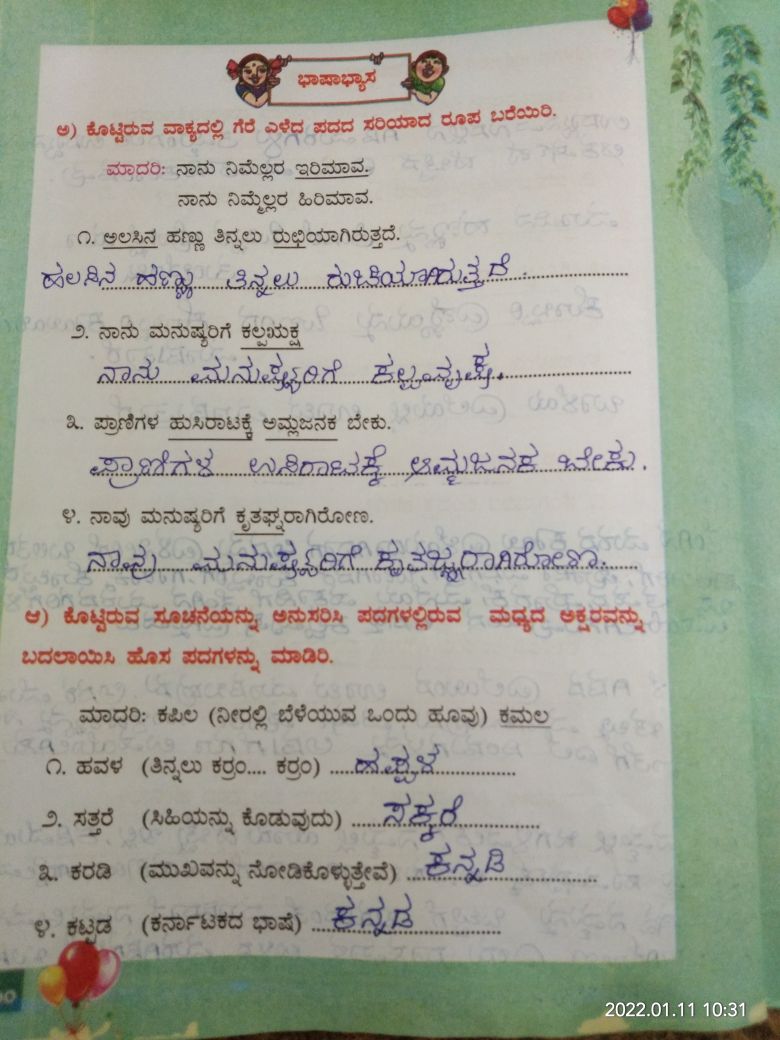 ಭಾಷಾಭ್ಯಾಸ
ಅ) ಕೊಟ್ಟಿರುವ ವಾಕ್ಯದಲ್ಲಿ ಗೆರೆ ಎಳೆದ ಪದದ ಸರಿಯಾದ ರೂಪ ಬರೆಯಿರಿ.
ಮಾದರಿ: ನಾನು ನಿಮೆಲ್ಲರ ಇರಿಮಾವ.
ನಾನು ನಿಮ್ಮೆಲ್ಲರ ಹಿರಿಮಾವ.
೧. ಅಲಸಿನ ಹಣ್ಣು ತಿನ್ನಲು ರುಛಿಯಾಗಿರುತ್ತದೆ.
ಹಲಸಿನ ಹಣ್ಣು ತಿನ್ನಲು ರುಚಿಯಾಗಿರುತ್ತದೆ.
೨. ನಾನು ಮನುಷ್ಯರಿಗೆ ಕಲ್ಪಋಕ್ಷ
ನಾನು ಮನುಷ್ಯರಿಗೆ ಕಲ್ಪವೃಕ್ಷ.
೩. ಪ್ರಾಣಿಗಳ ಹುಸಿರಾಟಕ್ಕೆ ಅಮ್ಲಜನಕ ಬೇಕು.
ಪ್ರಾಣಿಗಳ ಉಸಿರಾಟಕ್ಕೆ ಆಮ್ಲಜನಕ ಬೇಕು.
೪. ನಾವು ಮನುಷ್ಯರಿಗೆ ಕೃತಘ್ನರಾಗಿರೋಣ.
ನಾವು ಮನುಷ್ಯರಿಗೆ ಕೃತಜ್ಞರಾಗಿರೋಣ.
ಆ) ಕೊಟ್ಟಿರುವ ಸೂಚನೆಯನ್ನು ಅನುಸರಿಸಿ ಪದಗಳಲ್ಲಿರುವ ಮಧ್ಯದ ಅಕ್ಷರವನ್ನು
ಬದಲಾಯಿಸಿ ಹೊಸ ಪದಗಳನ್ನು ಮಾಡಿರಿ.
ಮಾದರಿ: ಕಪಿಲ (ನೀರಲ್ಲಿ ಬೆಳೆಯುವ ಒಂದು ಹೂವು) ಕಮಲ
೧. ಹವಳ (ತಿನ್ನಲು ಕರ್ರಂ.... ಕರ್ರಂ) ಹಪ್ಪಳ
೨. ಸತ್ತರೆ (ಸಿಹಿಯನ್ನು ಕೊಡುವುದು) ಸಕ್ಕರೆ
೩. ಕರಡಿ (ಮುಖವನ್ನು ನೋಡಿಕೊಳ್ಳುತ್ತೇವೆ) ಕನ್ನಡಿ
೪. ಕಟ್ಟಡ (ಕರ್ನಾಟಕದ ಭಾಷೆ) ಕನ್ನಡ
2022.01.11 10:31